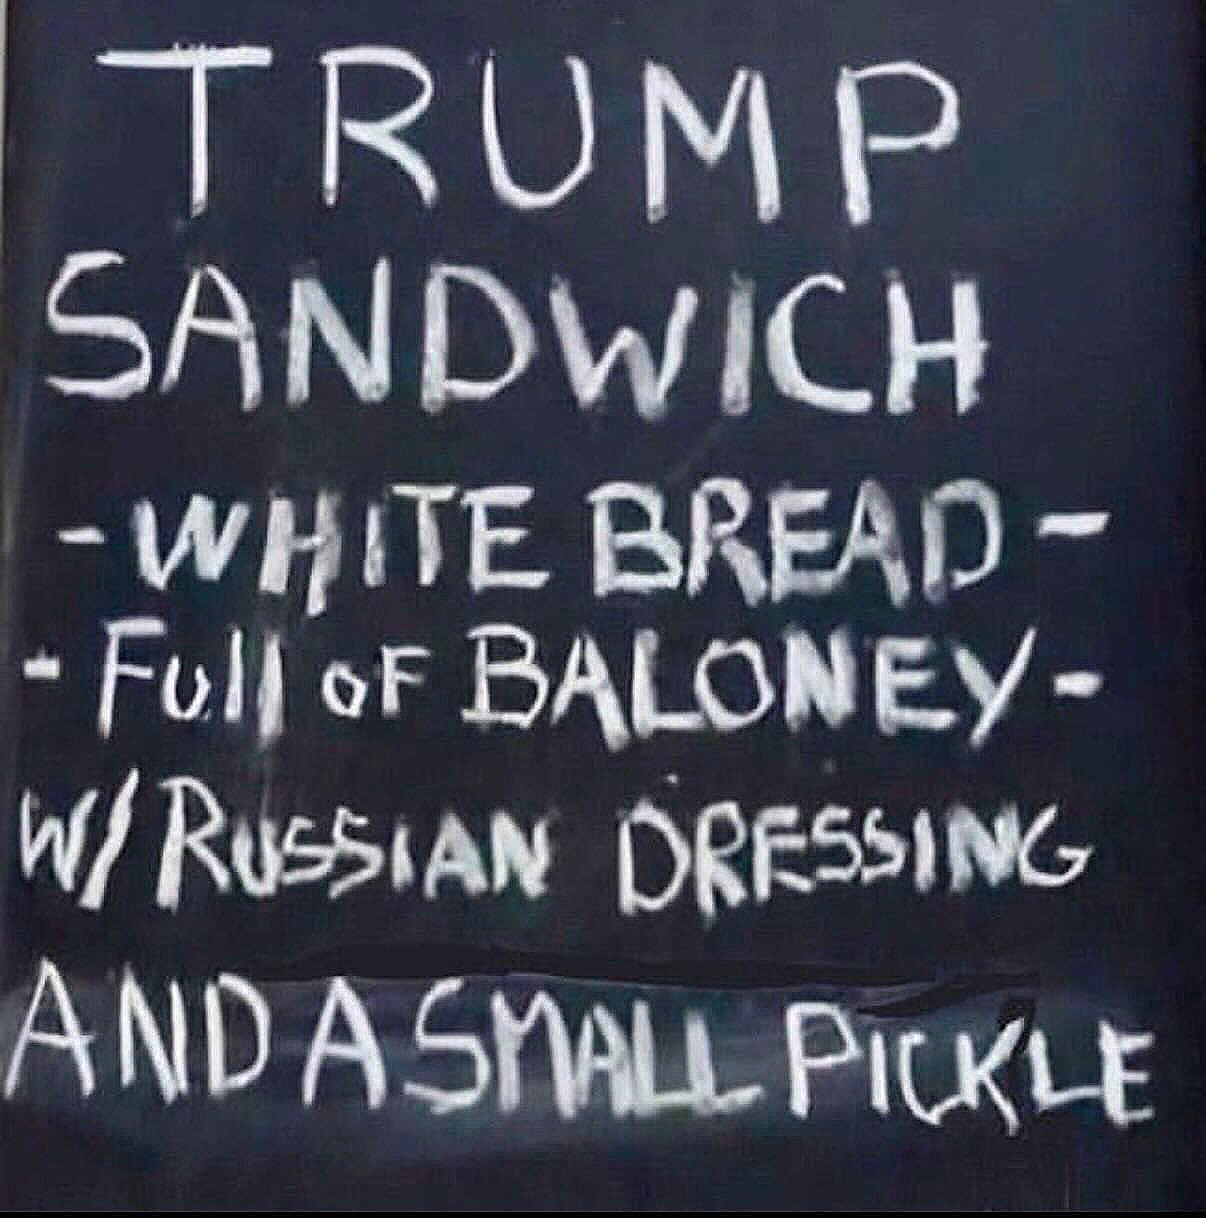 TRUMP
SANDWICH
-WHITE BREAD-
-Full OF BALONEY-
W/ RUSSIAN DRESSING
AND A SMALL PICKLE